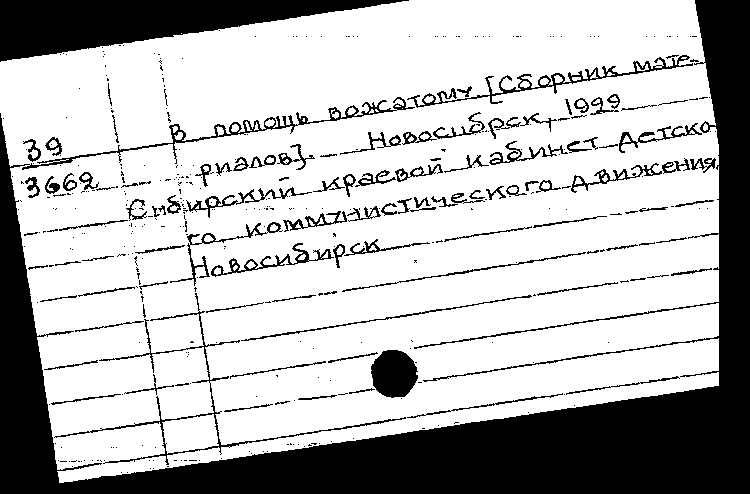 В помощь вожатому. [Сборник мате-
39
риалов]. Новосибрск, 1999
3669
Сибирский краевой кабинет детско-
го коммунистического движения,
Новосибирск